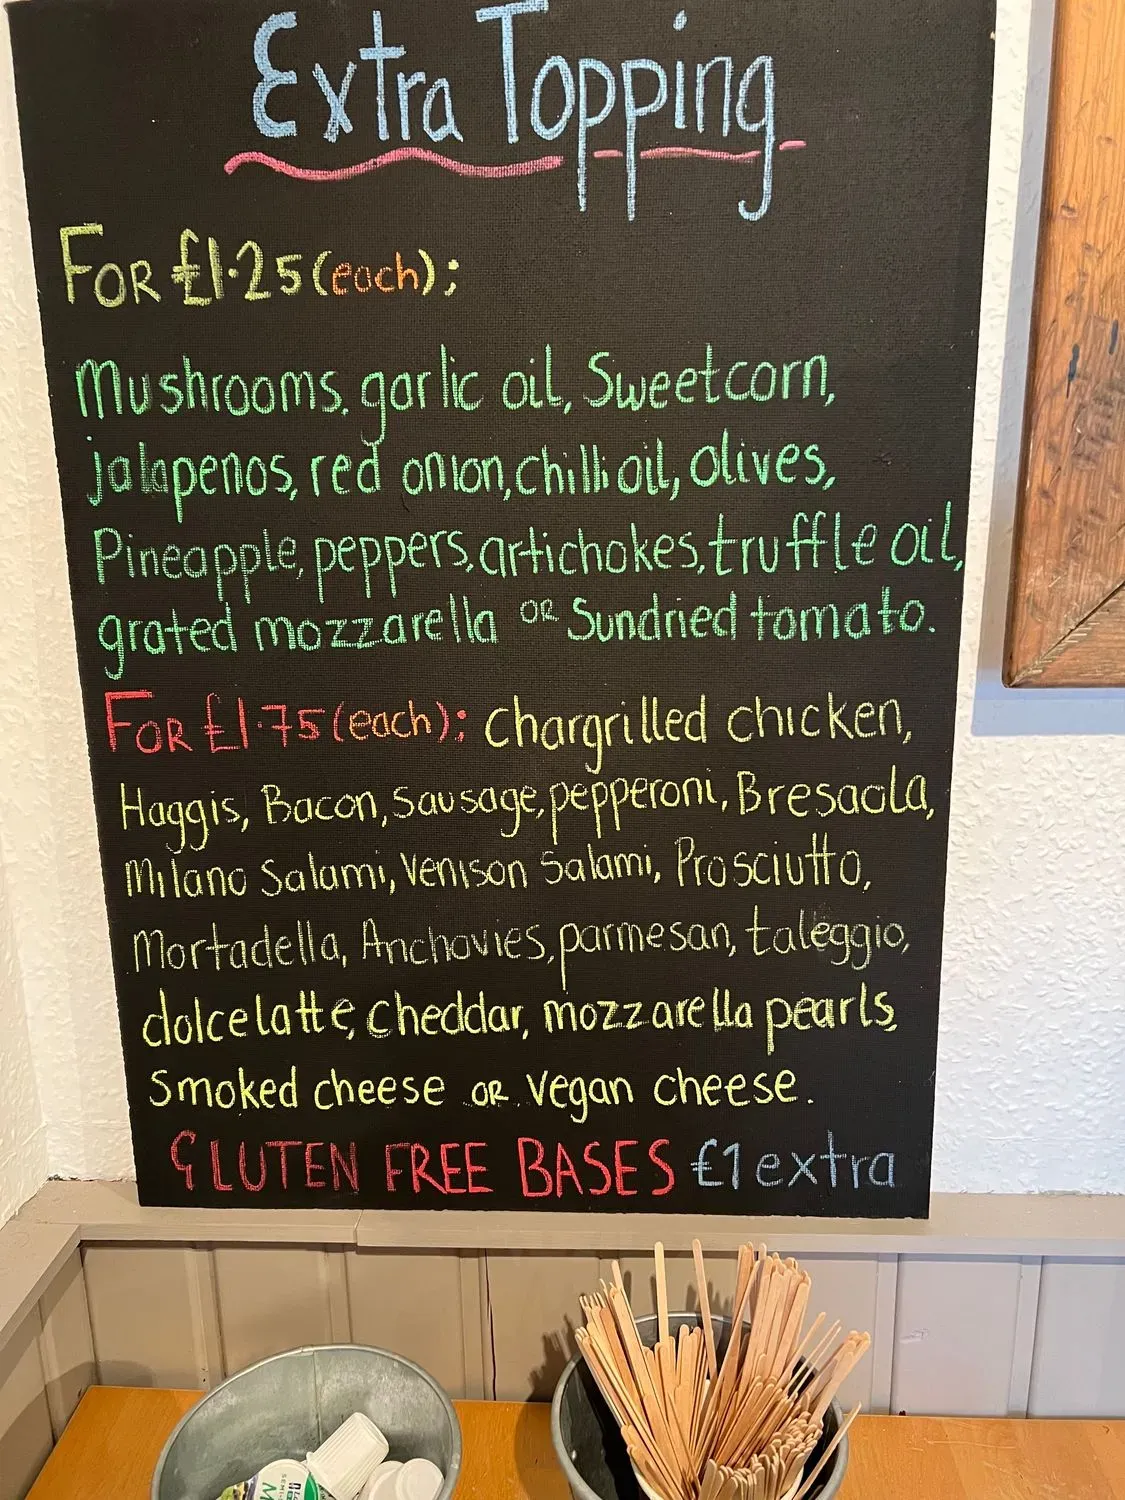 Extra Topping
FOR £1.25 (each);
Mushrooms, garlic oil, Sweetcorn,
jalapenos, red onion, chilli oil, olives,
Pineapple, peppers, artichokes, truffle oil,
grated mozzarella OR Sundried tomato.
FOR £1.75 (each); chargrilled chicken,
Haggis, Bacon, sausage, pepperoni, Bresaola,
Milano Salami, Venison Salami, Prosciutto,
Mortadella, Anchovies, parmesan, taleggio,
dolcelatte, cheddar, mozzarella pearls,
Smoked cheese OR vegan cheese.
GLUTEN FREE BASES £1 extra